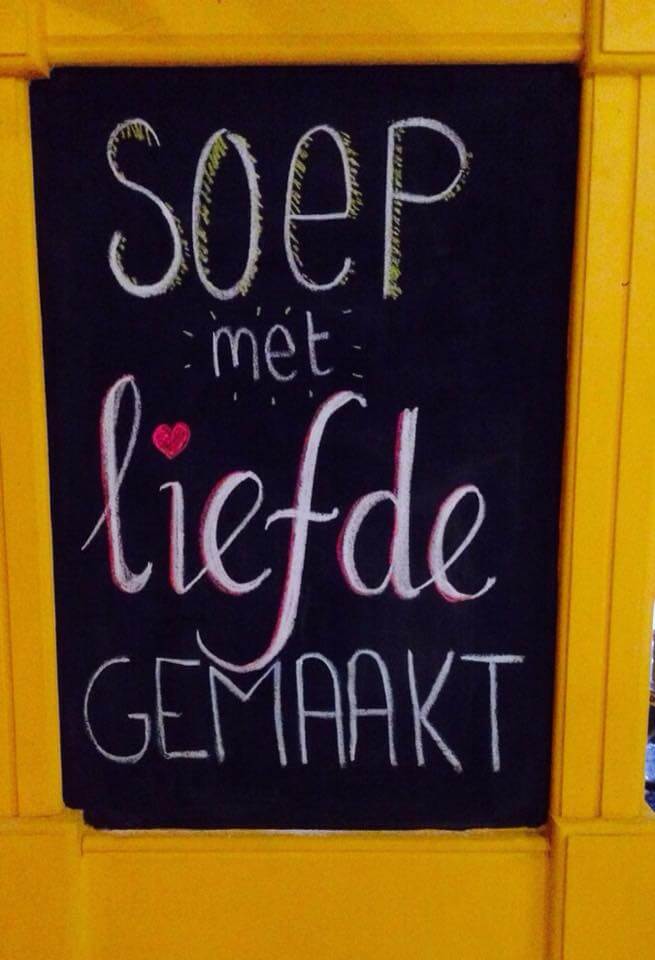 SOEP
met
liefde
GEMAAKT